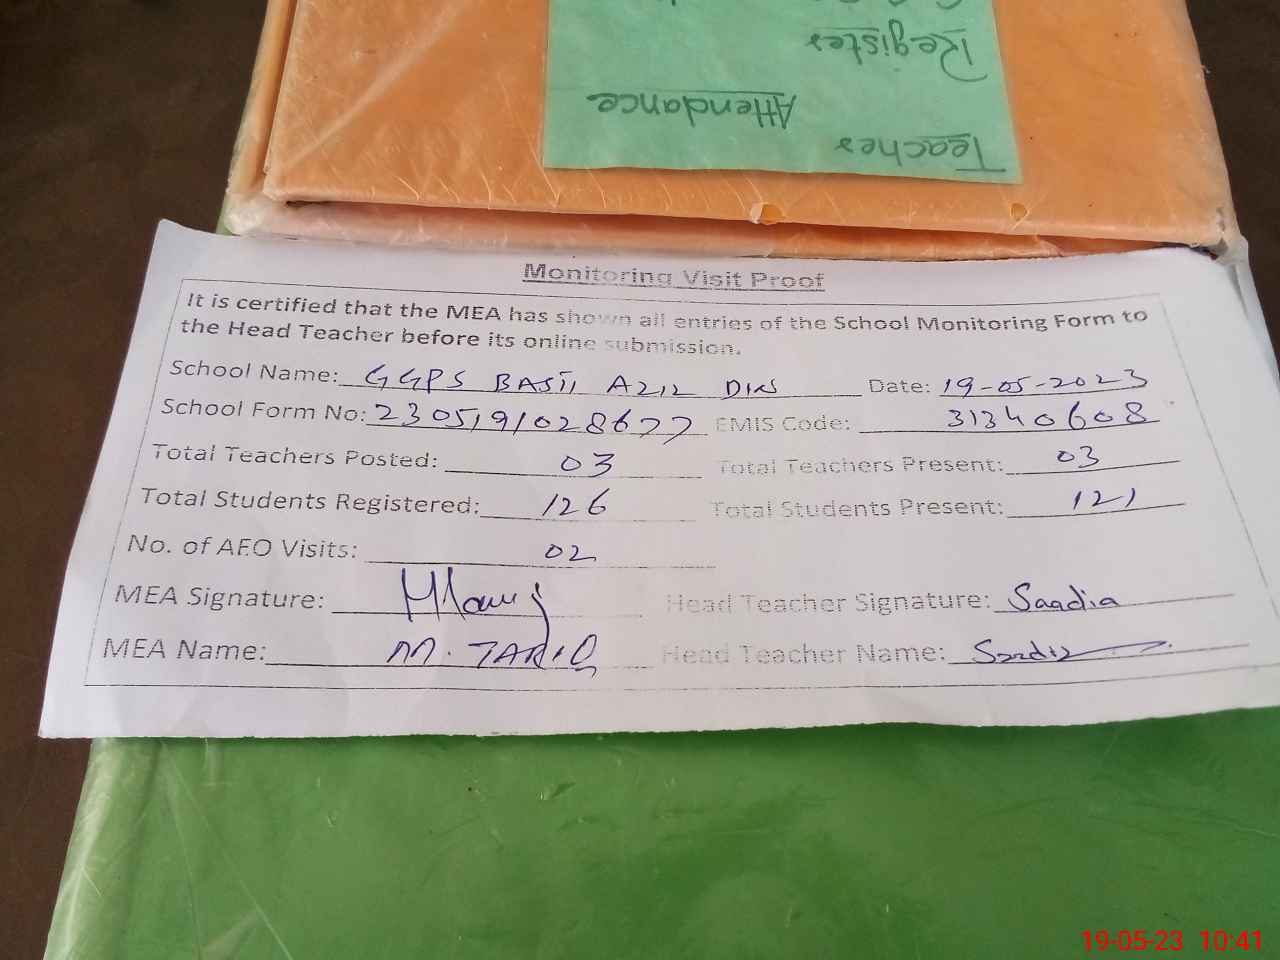 Register
Attendance
Teacher
Monitoring Visit Proof
It is certified that the MEA has shown all entries of the School Monitoring Form to
the Head Teacher before its online submission.
School Name: GGPS BASTI AZIZ DIN Date: 19-05-2023
School Form No: 2305191028677 EMIS Code: 31340608
Total Teachers Posted: 03 Total Teachers Present: 03
Total Students Registered: 126 Total Students Present: 121
No. of AEO Visits: 02
MEA Signature: Head Teacher Signature: Saadia
MEA Name: M. TARIQ Head Teacher Name: Saadia
19-05-23 10:41